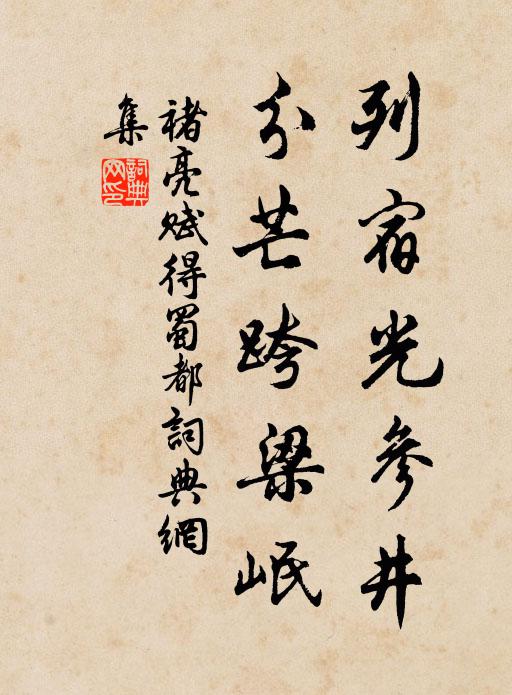 列宿光參井
分芒跨梁岷
褚亮賦得蜀都詞典網
集
詞典
网印